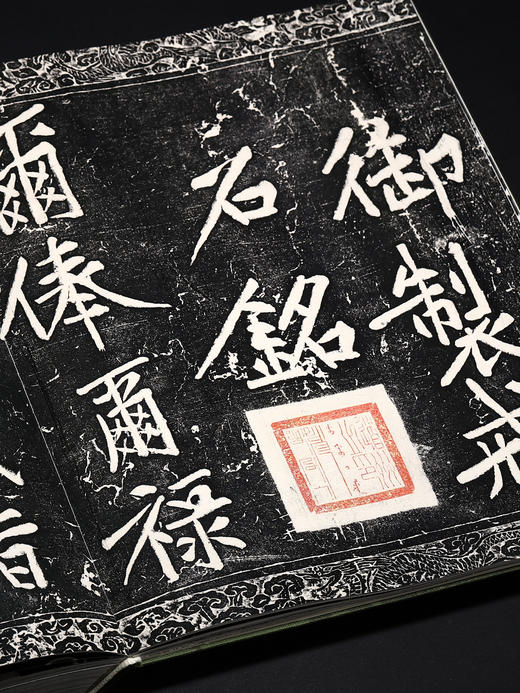 御製戒
石銘
爾俸爾禄
旨